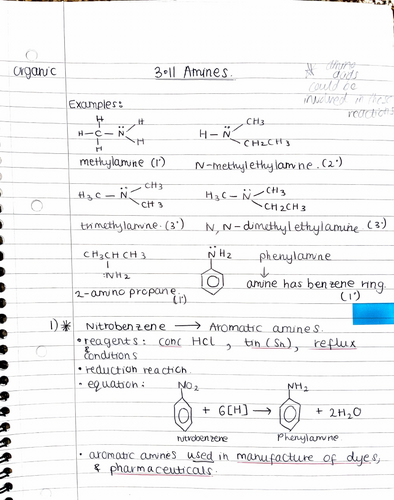 organic
3.11 Amines.
* Amino
acids
could be
involved in these
reactions
Examples:
H
H – C – N̈ H
H H
methylamine (1°)
H – N̈ CH3
CH2CH3
N-methylethylamine. (2°)
H3C – N̈ CH3
CH3
trimethylamine (3°)
H3C – N̈ CH3
CH2CH3
N, N-dimethylethylamine (3°)
CH3CHCH3
:NH2
2-aminopropane. (1°)
N̈H2
phenylamine
↓
amine has benzene ring.
(1°)
1) * Nitrobenzene ⟶ Aromatic amines.
• reagents: conc HCl, tin (Sn), reflux
& conditions
• reduction reaction.
• equation:
NO2 + 6[H] ⟶ NH2 + 2H2O
nitrobenzene Phenylamine
• aromatic amines used in manufacture of dyes,
& pharmaceuticals.